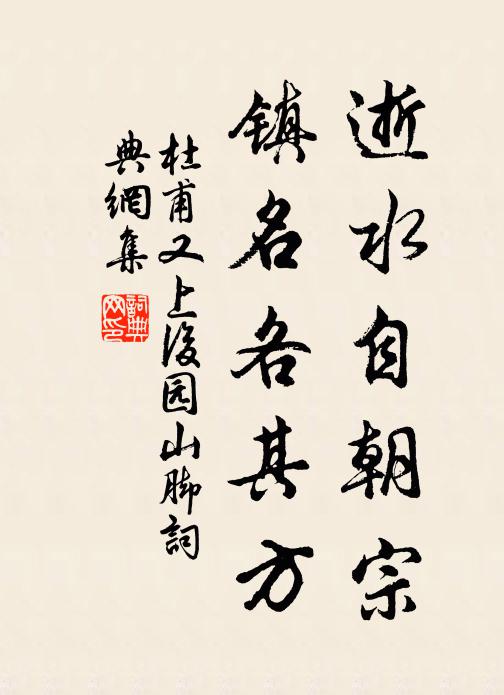 逝水自朝宗
镇名各其方
杜甫又上後园山脚詞
典網集
詞典
网印